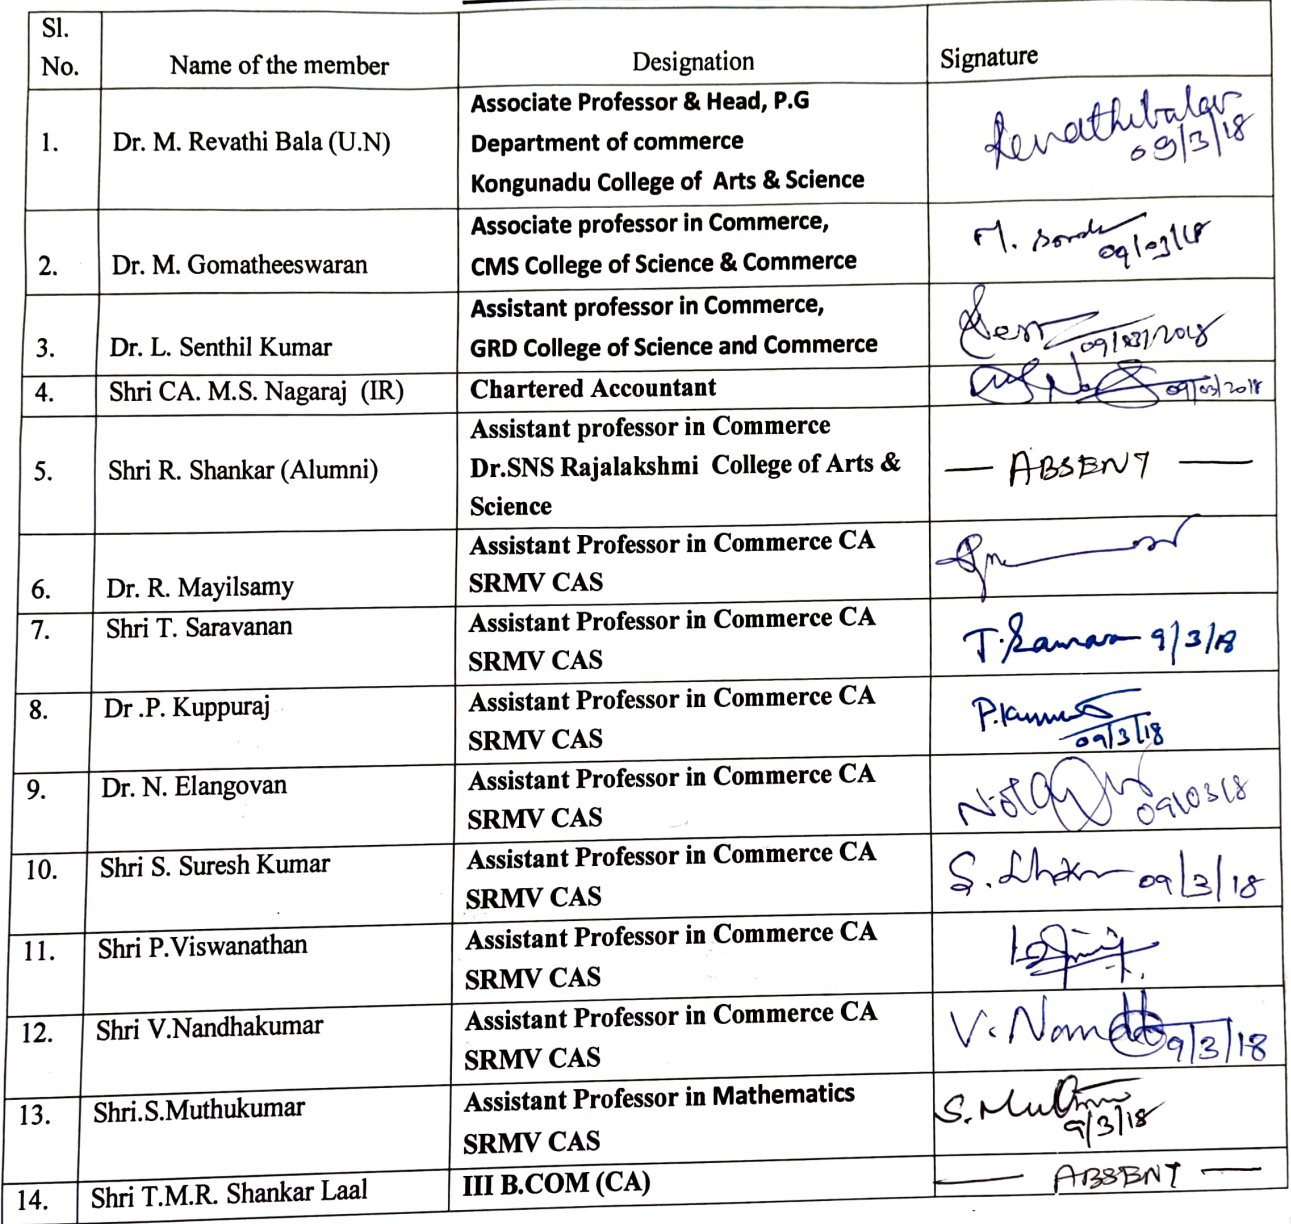 Sl.
No.
Name of the member
Designation
Signature
1.
Dr. M. Revathi Bala (U.N)
Associate Professor & Head, P.G
Department of commerce
Kongunadu College of Arts & Science
Revathibalav
09/3/18
2.
Dr. M. Gomatheeswaran
Associate professor in Commerce,
CMS College of Science & Commerce
M.
09/03/18
3.
Dr. L. Senthil Kumar
Assistant professor in Commerce,
GRD College of Science and Commerce
09/03/2018
4.
Shri CA. M.S. Nagaraj (IR)
Chartered Accountant
09/03/2018
5.
Shri R. Shankar (Alumni)
Assistant professor in Commerce
Dr.SNS Rajalakshmi College of Arts &
Science
— ABSENT —
6.
Dr. R. Mayilsamy
Assistant Professor in Commerce CA
SRMV CAS
7.
Shri T. Saravanan
Assistant Professor in Commerce CA
SRMV CAS
T. 9/3/18
8.
Dr .P. Kuppuraj
Assistant Professor in Commerce CA
SRMV CAS
09/3/18
9.
Dr. N. Elangovan
Assistant Professor in Commerce CA
SRMV CAS
09/03/8
10.
Shri S. Suresh Kumar
Assistant Professor in Commerce CA
SRMV CAS
S. 09/3/18
11.
Shri P.Viswanathan
Assistant Professor in Commerce CA
SRMV CAS
12.
Shri V.Nandhakumar
Assistant Professor in Commerce CA
SRMV CAS
V. 9/3/18
13.
Shri.S.Muthukumar
Assistant Professor in Mathematics
SRMV CAS
S.
9/3/18
14.
Shri T.M.R. Shankar Laal
III B.COM (CA)
— ABSENT —